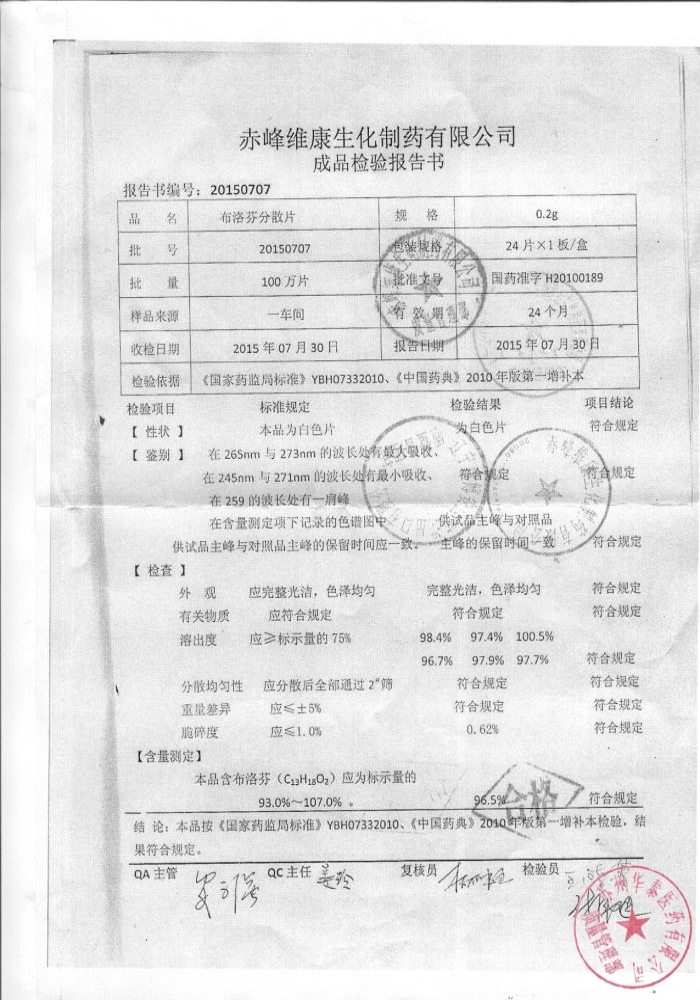 赤峰维康生化制药有限公司
成品检验报告书
报告书编号：20150707
品 名 布洛芬分散片 规 格 0.2g
批 号 20150707 包装规格 24片×1板/盒
批 量 100万片 批准文号 国药准字H20100189
样品来源 一车间 有效期 24个月
收检日期 2015年07月30日 报告日期 2015年07月30日
检验依据 《国家药监局标准》YBH07332010、《中国药典》2010年版第一增补本
检验项目 标准规定 检验结果 项目结论
【性状】 本品为白色片 为白色片 符合规定
【鉴别】 在265nm与273nm的波长处有最大吸收、
在245nm与271nm的波长处有最小吸收、 符合规定 符合规定
在259的波长处有一肩峰
在含量测定项下记录的色谱图中 供试品主峰与对照品
供试品主峰与对照品主峰的保留时间应一致。 主峰的保留时间一致 符合规定
【检查】
外 观 应完整光洁，色泽均匀 完整光洁，色泽均匀 符合规定
有关物质 应符合规定 符合规定 符合规定
溶出度 应≥标示量的75% 98.4% 97.4% 100.5%
96.7% 97.9% 97.7% 符合规定
分散均匀性 应分散后全部通过2#筛 符合规定 符合规定
重量差异 应≤±5% 符合规定 符合规定
脆碎度 应≤1.0% 0.62% 符合规定
【含量测定】
本品含布洛芬（C₁₃H₁₈O₂）应为标示量的
93.0%～107.0%。 96.5% 符合规定
合格
结 论：本品按《国家药监局标准》YBH07332010、《中国药典》2010年版第一增补本检验，结
果符合规定。
QA主管 QC主任 复核员 检验员